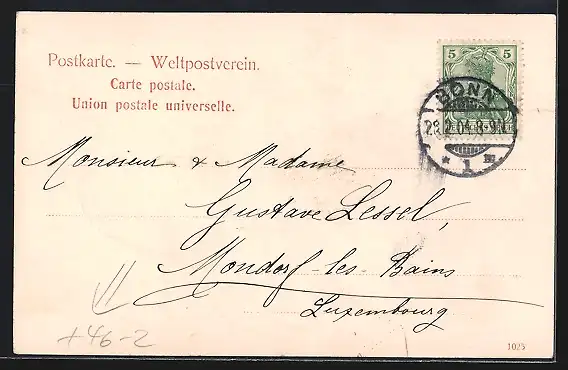 Postkarte. — Weltpostverein.
Carte postale.
Union postale universelle.
5 5
BONN
28.2.04.8-9N
* 1 m
Monsieur & Madame
Gustave Lessel,
Mondorf-les-Bains
Luxembourg
+46-2
1025